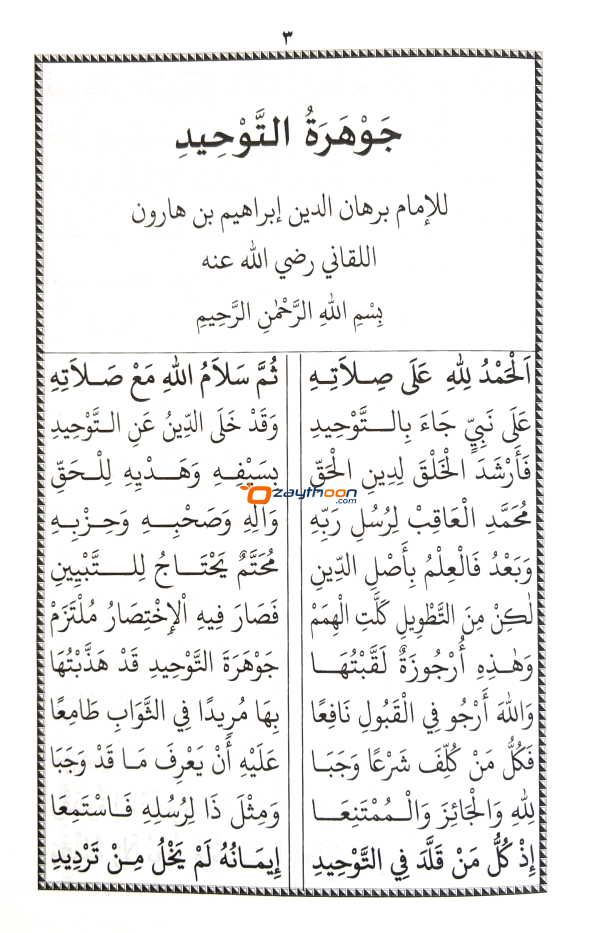 ٣
جَوْهَرَةُ التَّوْحِيدِ
للإمام برهان الدين إبراهيم بن هارون
اللقاني رضي الله عنه
بِسْمِ اللهِ الرَّحْمٰنِ الرَّحِيمِ
اَلْحَمْدُ لِلهِ عَلَى صِلَاتِهِ ثُمَّ سَلَامُ اللهِ مَعْ صَلَاتِهِ
عَلَى نَبِيٍّ جَاءَ بِالتَّوْحِيدِ وَقَدْ خَلَى الدِّينُ عَنِ التَّوْحِيدِ
فَأَرْشَدَ الْخَلْقَ لِدِينِ الْحَقِّ بِسَيْفِهِ وَهَدْيِهِ لِلْحَقِّ
ozaythoon.com
مُحَمَّدِ الْعَاقِبْ لِرُسْلِ رَبِّهِ وَآلِهِ وَصَحْبِهِ وَحِزْبِهِ
وَبَعْدُ فَالْعِلْمُ بِأَصْلِ الدِّينِ مُحَتَّمٌ يَحْتَاجُ لِلتَّبْيِينِ
لٰكِنْ مِنَ التَّطْوِيلِ كَلَّتِ الْهِمَمْ فَصَارَ فِيهِ الْاِخْتِصَارُ مُلْتَزَمْ
وَهٰذِهِ أُرْجُوزَةٌ لَقَّبْتُهَا جَوْهَرَةَ التَّوْحِيدِ قَدْ هَذَّبْتُهَا
وَاللهَ أَرْجُو فِي الْقَبُولِ نَافِعًا بِهَا مُرِيدًا فِي الثَّوَابِ طَامِعًا
فَكُلُّ مَنْ كُلِّفَ شَرْعًا وَجَبَا عَلَيْهِ أَنْ يَعْرِفَ مَا قَدْ وَجَبَا
لِلهِ وَالْجَائِزَ وَالْمُمْتَنِعَا وَمِثْلَ ذَا لِرُسْلِهِ فَاسْتَمِعَا
إِذْ كُلُّ مَنْ قَلَّدَ فِي التَّوْحِيدِ إِيمَانُهُ لَمْ يَخْلُ مِنْ تَرْدِيدِ